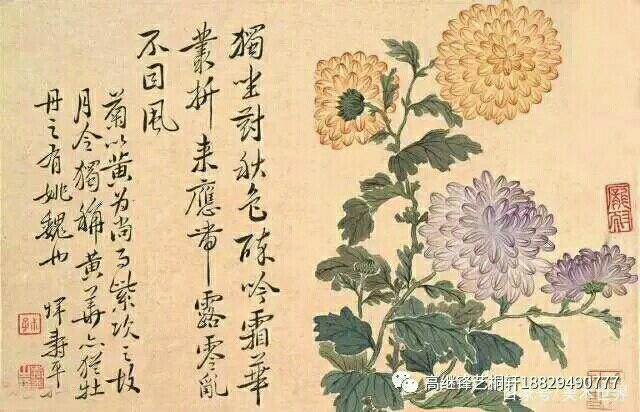 獨坐對秋色醉吟霜華
叢折来應帶露零亂
不因風
菊以黄为尚而紫次之故
月令獨稱黄華亦猶牡
丹之有姚魏也 惲壽平
高继锋艺桐轩18829490777
百家号/美术世界